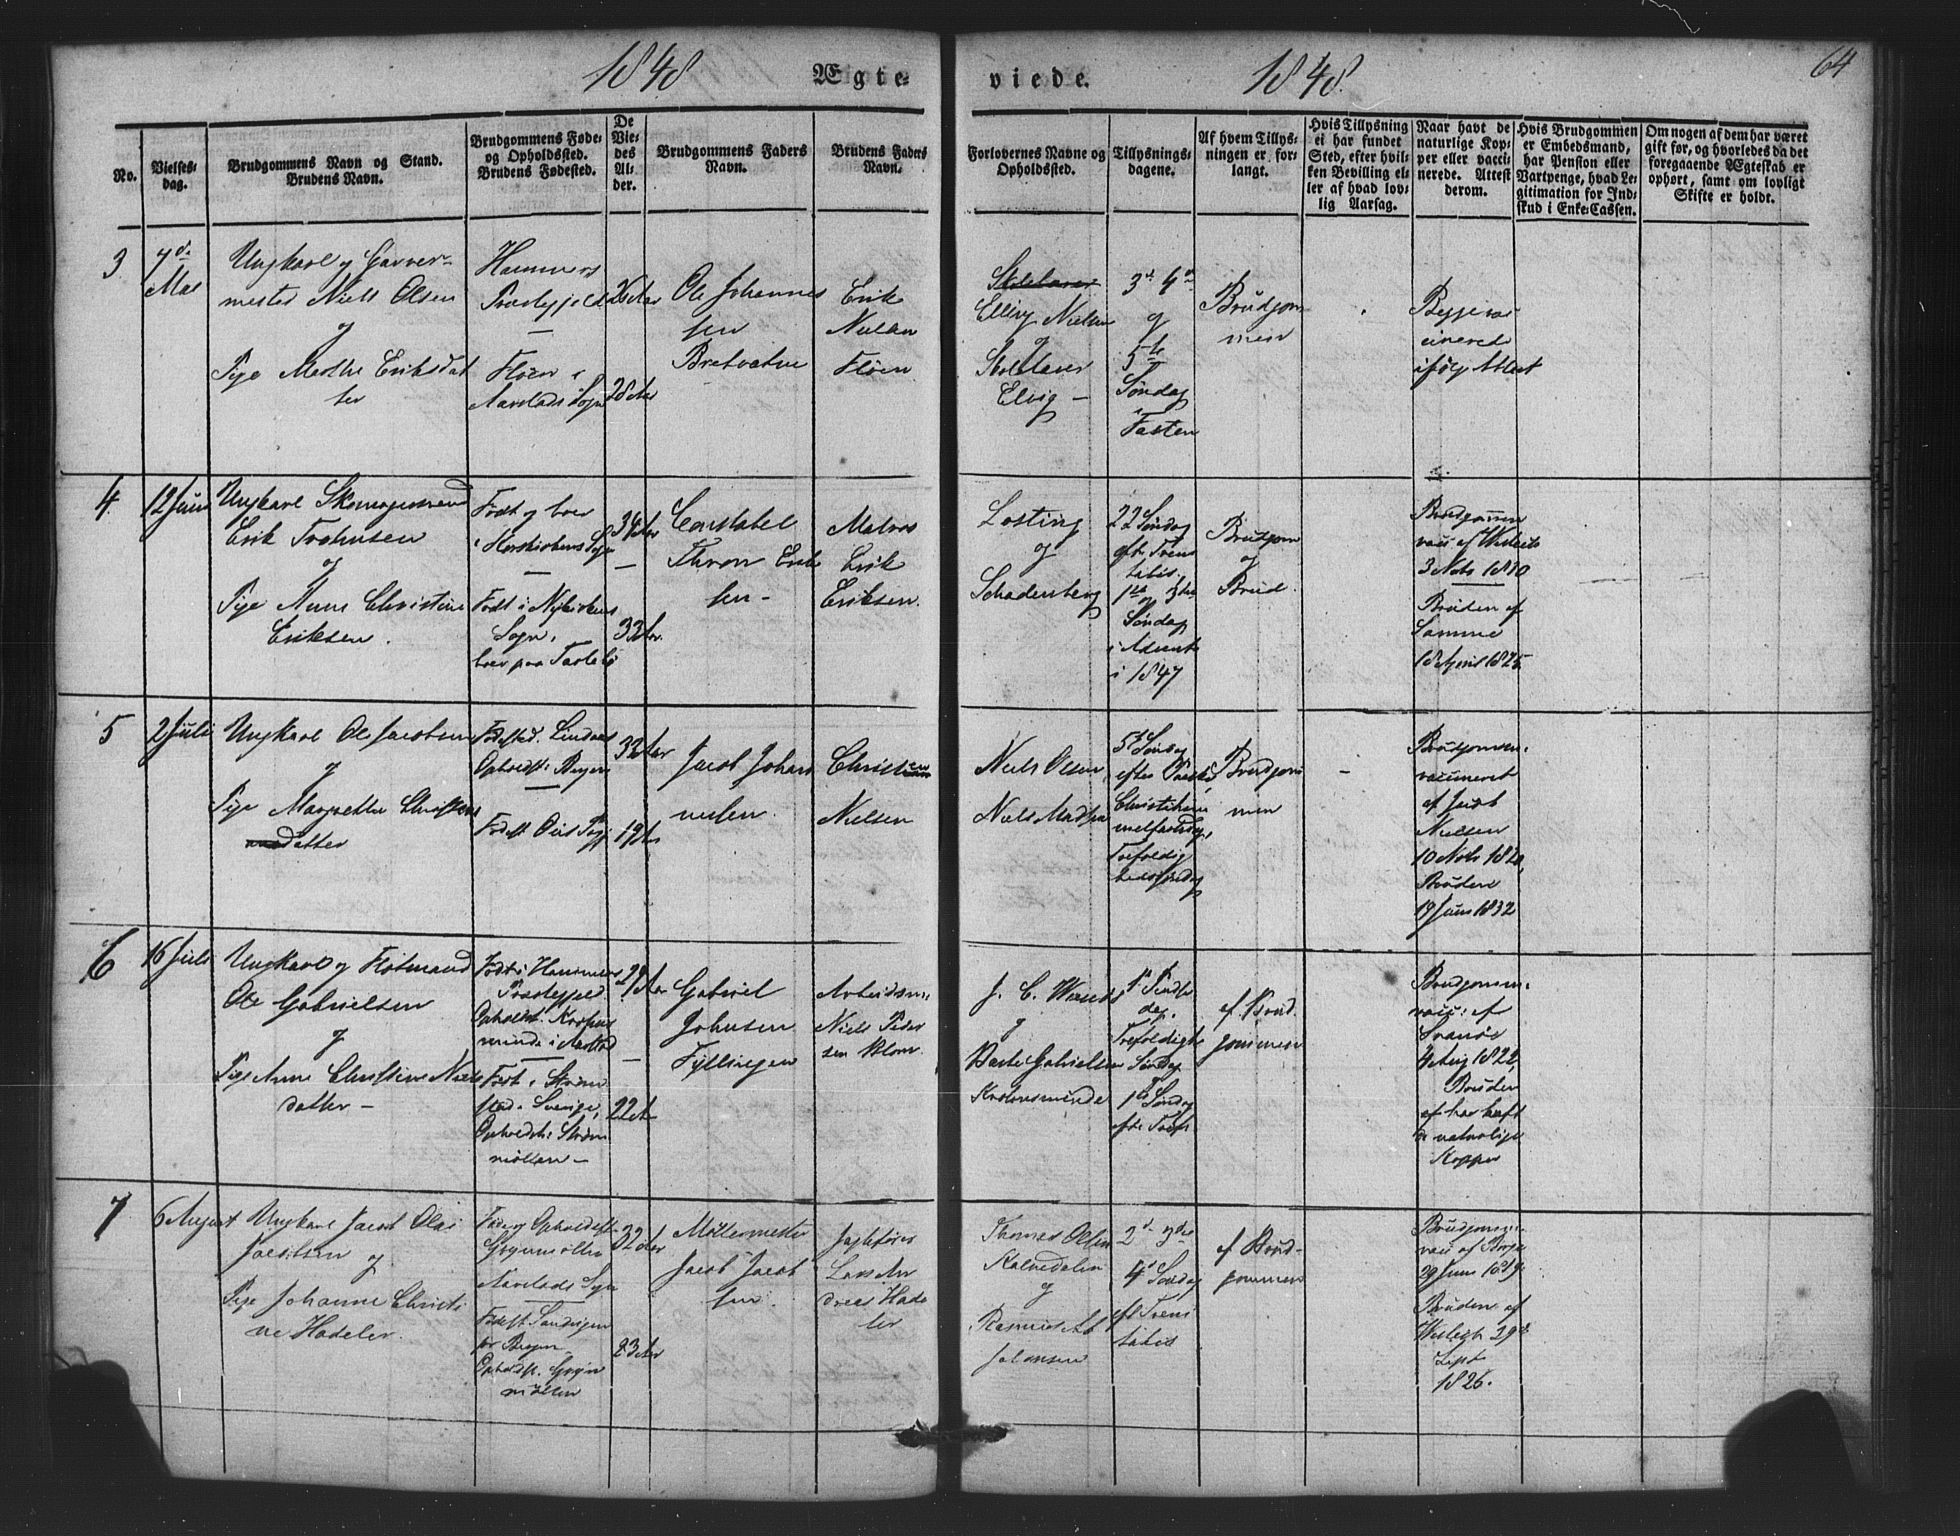 1848 Ægte-
viede. 1848. 64
No.
Vielses-
dag.
Brudgommens Navn og Stand.
Brudens Navn.
Brudgommens Føde-
og Opholdssted.
Brudens Fødested.
De
Vie-
des
Al-
der.
Brudgommens Faders
Navn.
Brudens Faders
Navn.
Forlovernes Navne og
Opholdssted.
Tillysnings-
dagene.
Af hvem Tillys-
ningen er for-
langt.
Hvis Tillysning
ei har fundet
Sted, efter hvil-
ken Bevilling el-
ler af hvad lov-
lig Aarsag.
Naar havt de
naturlige Kop-
per eller vacci-
nerede. Attest
derom.
Hvis Brudgommen
er Embedsmand,
har Pension eller
Vartpenge, hvad Le-
gitimation for Ind-
skud i Enke-Cassen.
Om nogen af dem har været
gift før, og hvorledes da det
foregaaende Ægteskab er
ophørt, samt om lovligt
Skifte er holdt.
3
7de
Mai
Ungkarl og Garver-
mester Niels Olsen
og
Pige Marthe Eriksdat
ter
Hammers
Præstegjeld
Fløen i
Aarstads Sogn
28 Aar
Ole Johannes
sen
Bretvatne
Erik
Nielsen
Fløen
Elling Nielsen
og
Skolelærer
Elvig
3die 4de
og
5te
Søndag
i
Fasten
Brudgom
men
Begge vac
cinerede
ifølg Attest
4.
12 Juni
Ungkarl Skomagersvend
Erik Trohnsen
og
Pige Anne Christine
Eriksen.
Født og boer
i Korskirkens Sogn
Født i Nykirkens
Sogn,
boer paa
34 Aar
33 Aar
Constabel
Thron Erik
sen
Matros
Erik
Eriksen.
Losting
og
Schadenberg
22 Søndag
eft. Trini
tatis,
1ste og
Søndag
i Advent
i 1847
Brudgom
og
Brud.
Brudgommen
vacc. af
3 1810
Bruden af
Samme
18 April 1825
5
2 Juli
Ungkarl Ole Jacobsen
og
Pige Margrethe Christens
datter
Fødested. Lindaas
Opholdst. Bergen
Fødest. Sogn
33 Aar
19 Aar
Jacob Johan
nesen
Christen
Nielsen
Niels Olsen,
Niels Madsen
5te Søndag
efter Paaske
Christi him
melfartsdag,
Trefoldig
hedssøndag
Brudgom
men
Brudgommen
vaccineret
af Jacob
Nielsen
10
Bruden
19 Juni 1832
6
16 Juli
Ungkarl og Flotmand
Ole Gabrielsen
og
Pige Anne Christine Niels
datter
Født i Hammers
Præstegjeld.
Opholdst. Krohns
minde i Aarstad
Født i Strøm
stad i Sverige,
Opholdst. Strøm
møllen
29 Aar
22 Aar
Gabriel
Johnsen
Fyllingen
Arbeidsm.
Niels Peder
sen Blom.
J. C.
og
Gabrielsen
Krohnsminde
1ste Pindse
dag.
Trefoldigh.
Søndag
1ste Søndag
eft. Tref.
af Brud
gommen
Brudgommen
vacc. af
Svanøe
4 Aug 1822,
Bruden
af har haft
de naturlige
Kopper
7
6 August
Ungkarl Jacob Olai
Jacobsen og
Pige Johanne Christi
ne Hadeler.
Føde og Opholdsst.
Grynmøllen
Aarstads Sogn
Fødest. Sandvigen
for Bergen
Opholdst. Gryn
møllen
32 Aar
23 Aar
Møllermester
Jacob Jacob
sen
Jagtefører
Lars An
dreas Hade
ler
Thomas Olsen
Kalvedalen
og
Rasmus
Johansen
2den 3die
4de Søndag
eft. Trini
tatis
af Brud-
gommen
Brudgommen
vacc af
29 Juni 1819.
Bruden af
29de
Sept
1826.